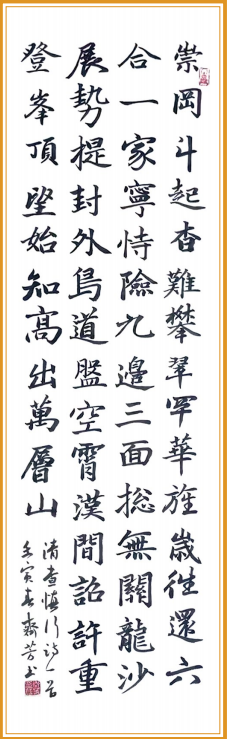 崇岡斗起杳難攀翠罕華旌歲往還六
合一家寧恃險九邊三面総無關龍沙
展勢提封外鳥道盤空霄漢間詔許重
登峯頂望始知高出萬層山
清查慎行詩一首
壬寅春齋芳书